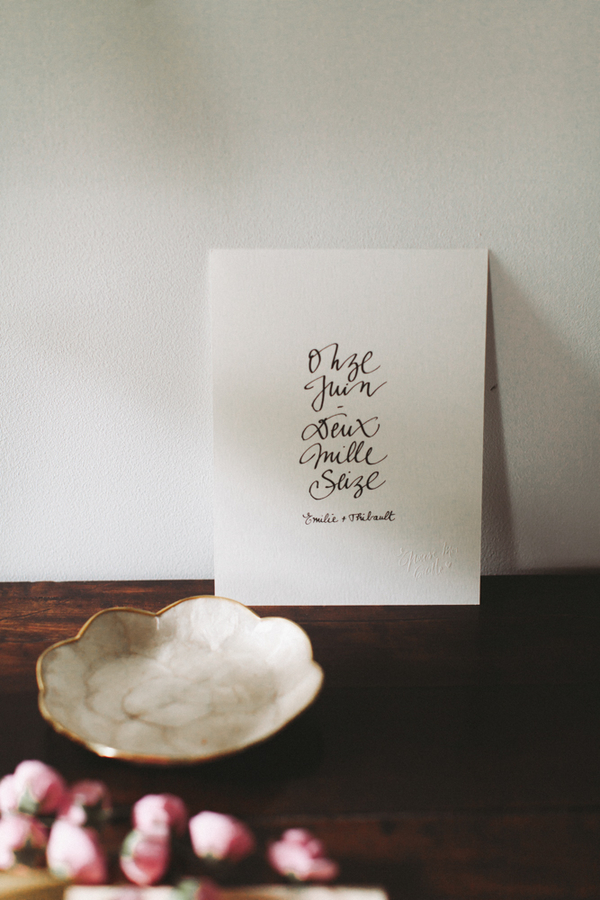 Onze
Juin
-
Deux
Mille
Seize
Emilie + Thibault